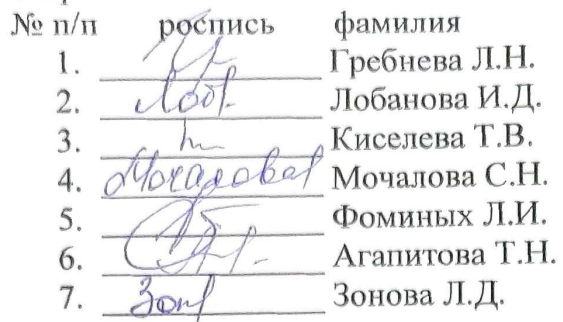 № п/п роспись фамилия
1. Гребнева Л.Н.
2. Лоб. Лобанова И.Д.
3. Киселева Т.В.
4. Мочалова Мочалова С.Н.
5. Фоминых Л.И.
6. Агапитова Т.Н.
7. Зон Зонова Л.Д.